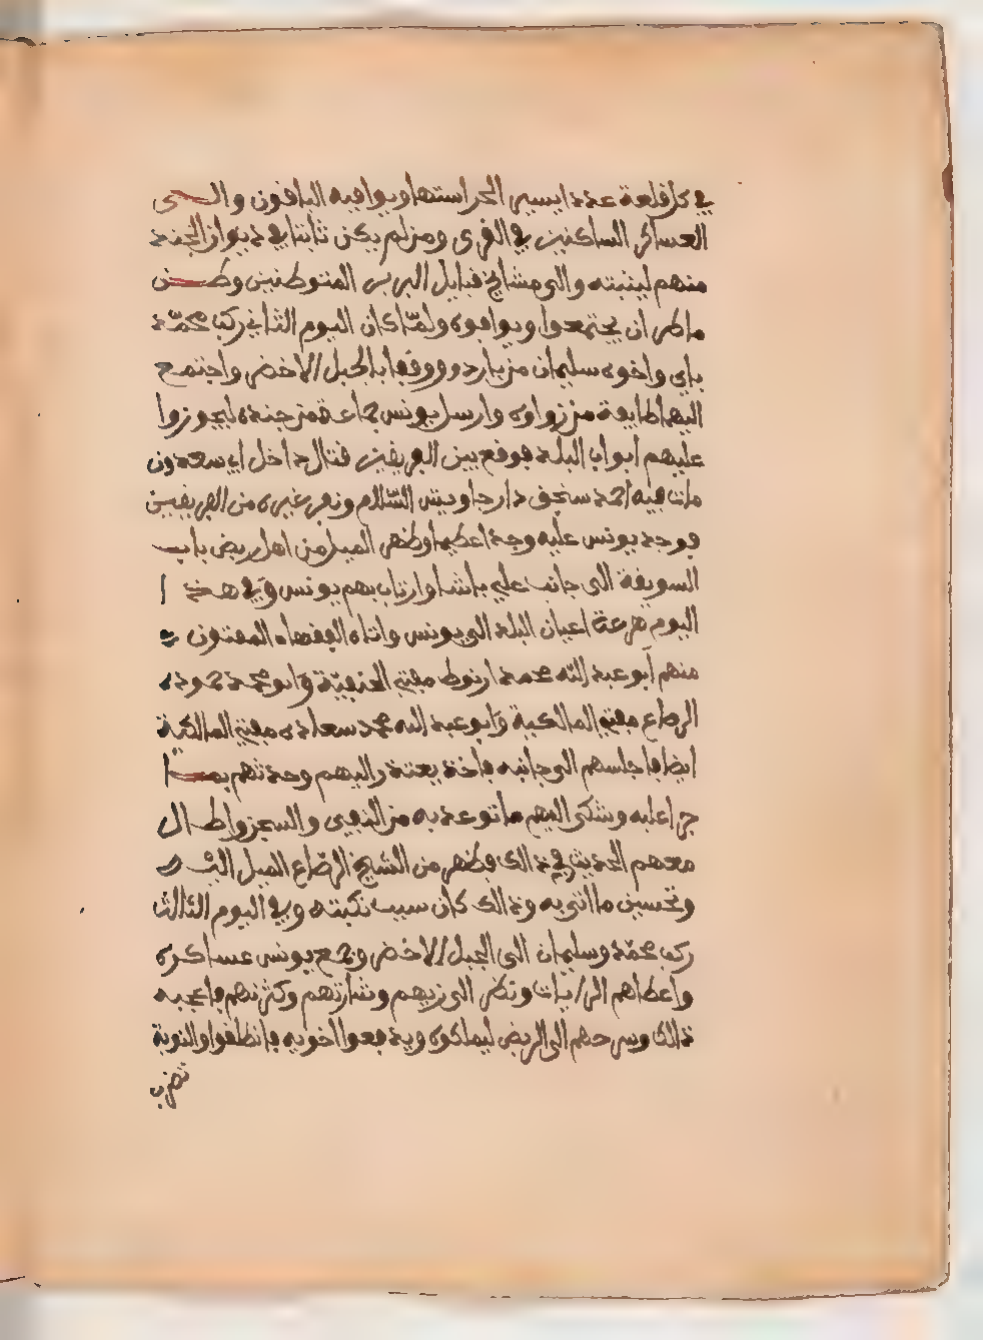 في كل قلعة عددا يسيرا لحراستها ويوافيه الباقون والى
العساكر الساكنين في القرى ومن لم يكن ثابتا في ديوان الجند
منهم ليثبته والى مشايخ قبايل البربر المتوطنين وطن
ماطر ان يجتمعوا ويوافوه ولمّا كان اليوم الثاني ركب محمّد
باي واخوه سليمان من باردو ووقفا بالجبل الاخضر واجتمع
اليهما طايفة من زواوه وارسل يونس جماعة من جنده ليحوزوا
عليهم ابواب البلد فوقع بين الفريقين قتال داخل ابي سعدون
مات فيه احمد سنجق دار جاويش السّلام ونفر غيره من الفريقين
فوجد يونس عليه وجدا عظيما وظهر الميل من اهل ربض باب
السويقة الى جانب علي باشا وارتاب بهم يونس وفي هذا
اليوم هرعة اعيان البلد الى يونس واتاه الفقهاء المفتون
منهم أبو عبد الله محمد ارنوط مفتي الحنفيّة وابو محمد حمودة
الرصاع مفتي المالكية وابو عبد الله محمد سعادة مفتي المالكية
ايضا فاجلسهم الى جانبه فاخذ يعتذر اليهم وحدثهم بما
جرا عليه وشكى اليهم ما توعد به من النفي والسجن واطال
معهم الحديث في ذالك فظهر من الشيخ الرصّاع الميل اليه
وتحسين ما اتى به وذالك كان سبب نكبته وفي اليوم الثالث
ركب محمّد وسليمان الى الجبل الاخضر وجمع يونس عساكره
واعطاهم الرايات ونظر الى زيهم وشارتهم وكثرتهم فاعجبه
ذالك وسرحهم الى الربض ليملكوه ويدفعوا اخويه فانطلقوا والنوبة
تضرب